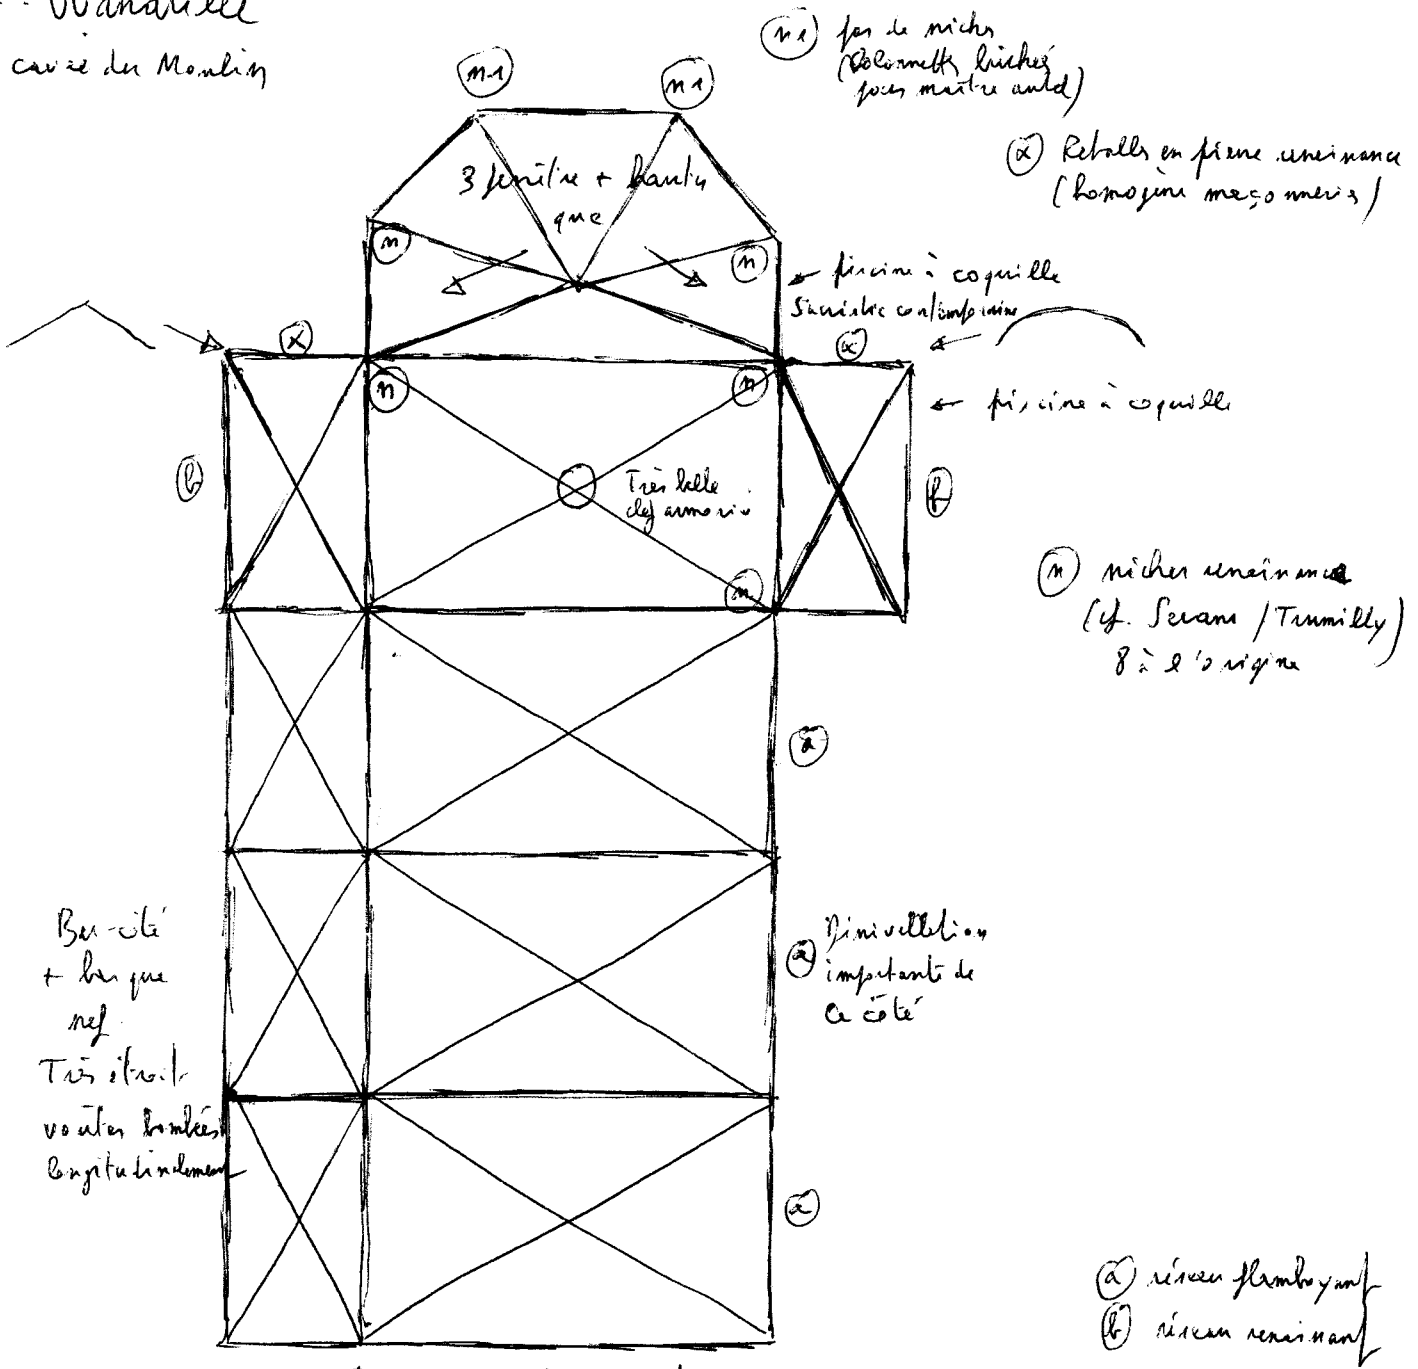 cavée du Moulin
n1 pas de niches
(Colonnettes bûchées
pour maître autel)
n1
n1
α Retables en pierre renaissance
(homogène maçonneries)
3 fenêtre + hautes
que
n
n
piscine à coquille
Sacristie contemporaine
α
α
n
n
piscine à coquille
b
Très belle
clef armoriée
b
n
n niches renaissance
(cf. Serans / Trumilly)
8 à l'origine
a
Bas-côté
+ bas que
nef
Très étroit
voûtes bombées
longitudinalement
a
Dénivellation
importante de
ce côté
a
a réseau flamboyant
b réseau renaissant